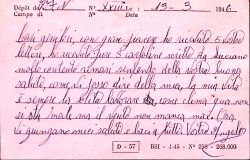 Dépôt de P.G. N° XXIII 13-3 1946
Campo di N°
Cari genitori, con gran piacere ho ricevuto 5 vostre
lettere, ho ricevuto pure 3 cartoline scritte da Luciano
molto contento rimasi sentendo della vostra buona
salute, come di posso dire della mia, la mia vita
è sempre la solita come clima qua non
si sta male ma il vento non manca mai. Ora
vi giungano miei saluti e baci a tutti Vostro Angelo
D - 57 BSI - 1-45 - N° 258 - 268.000